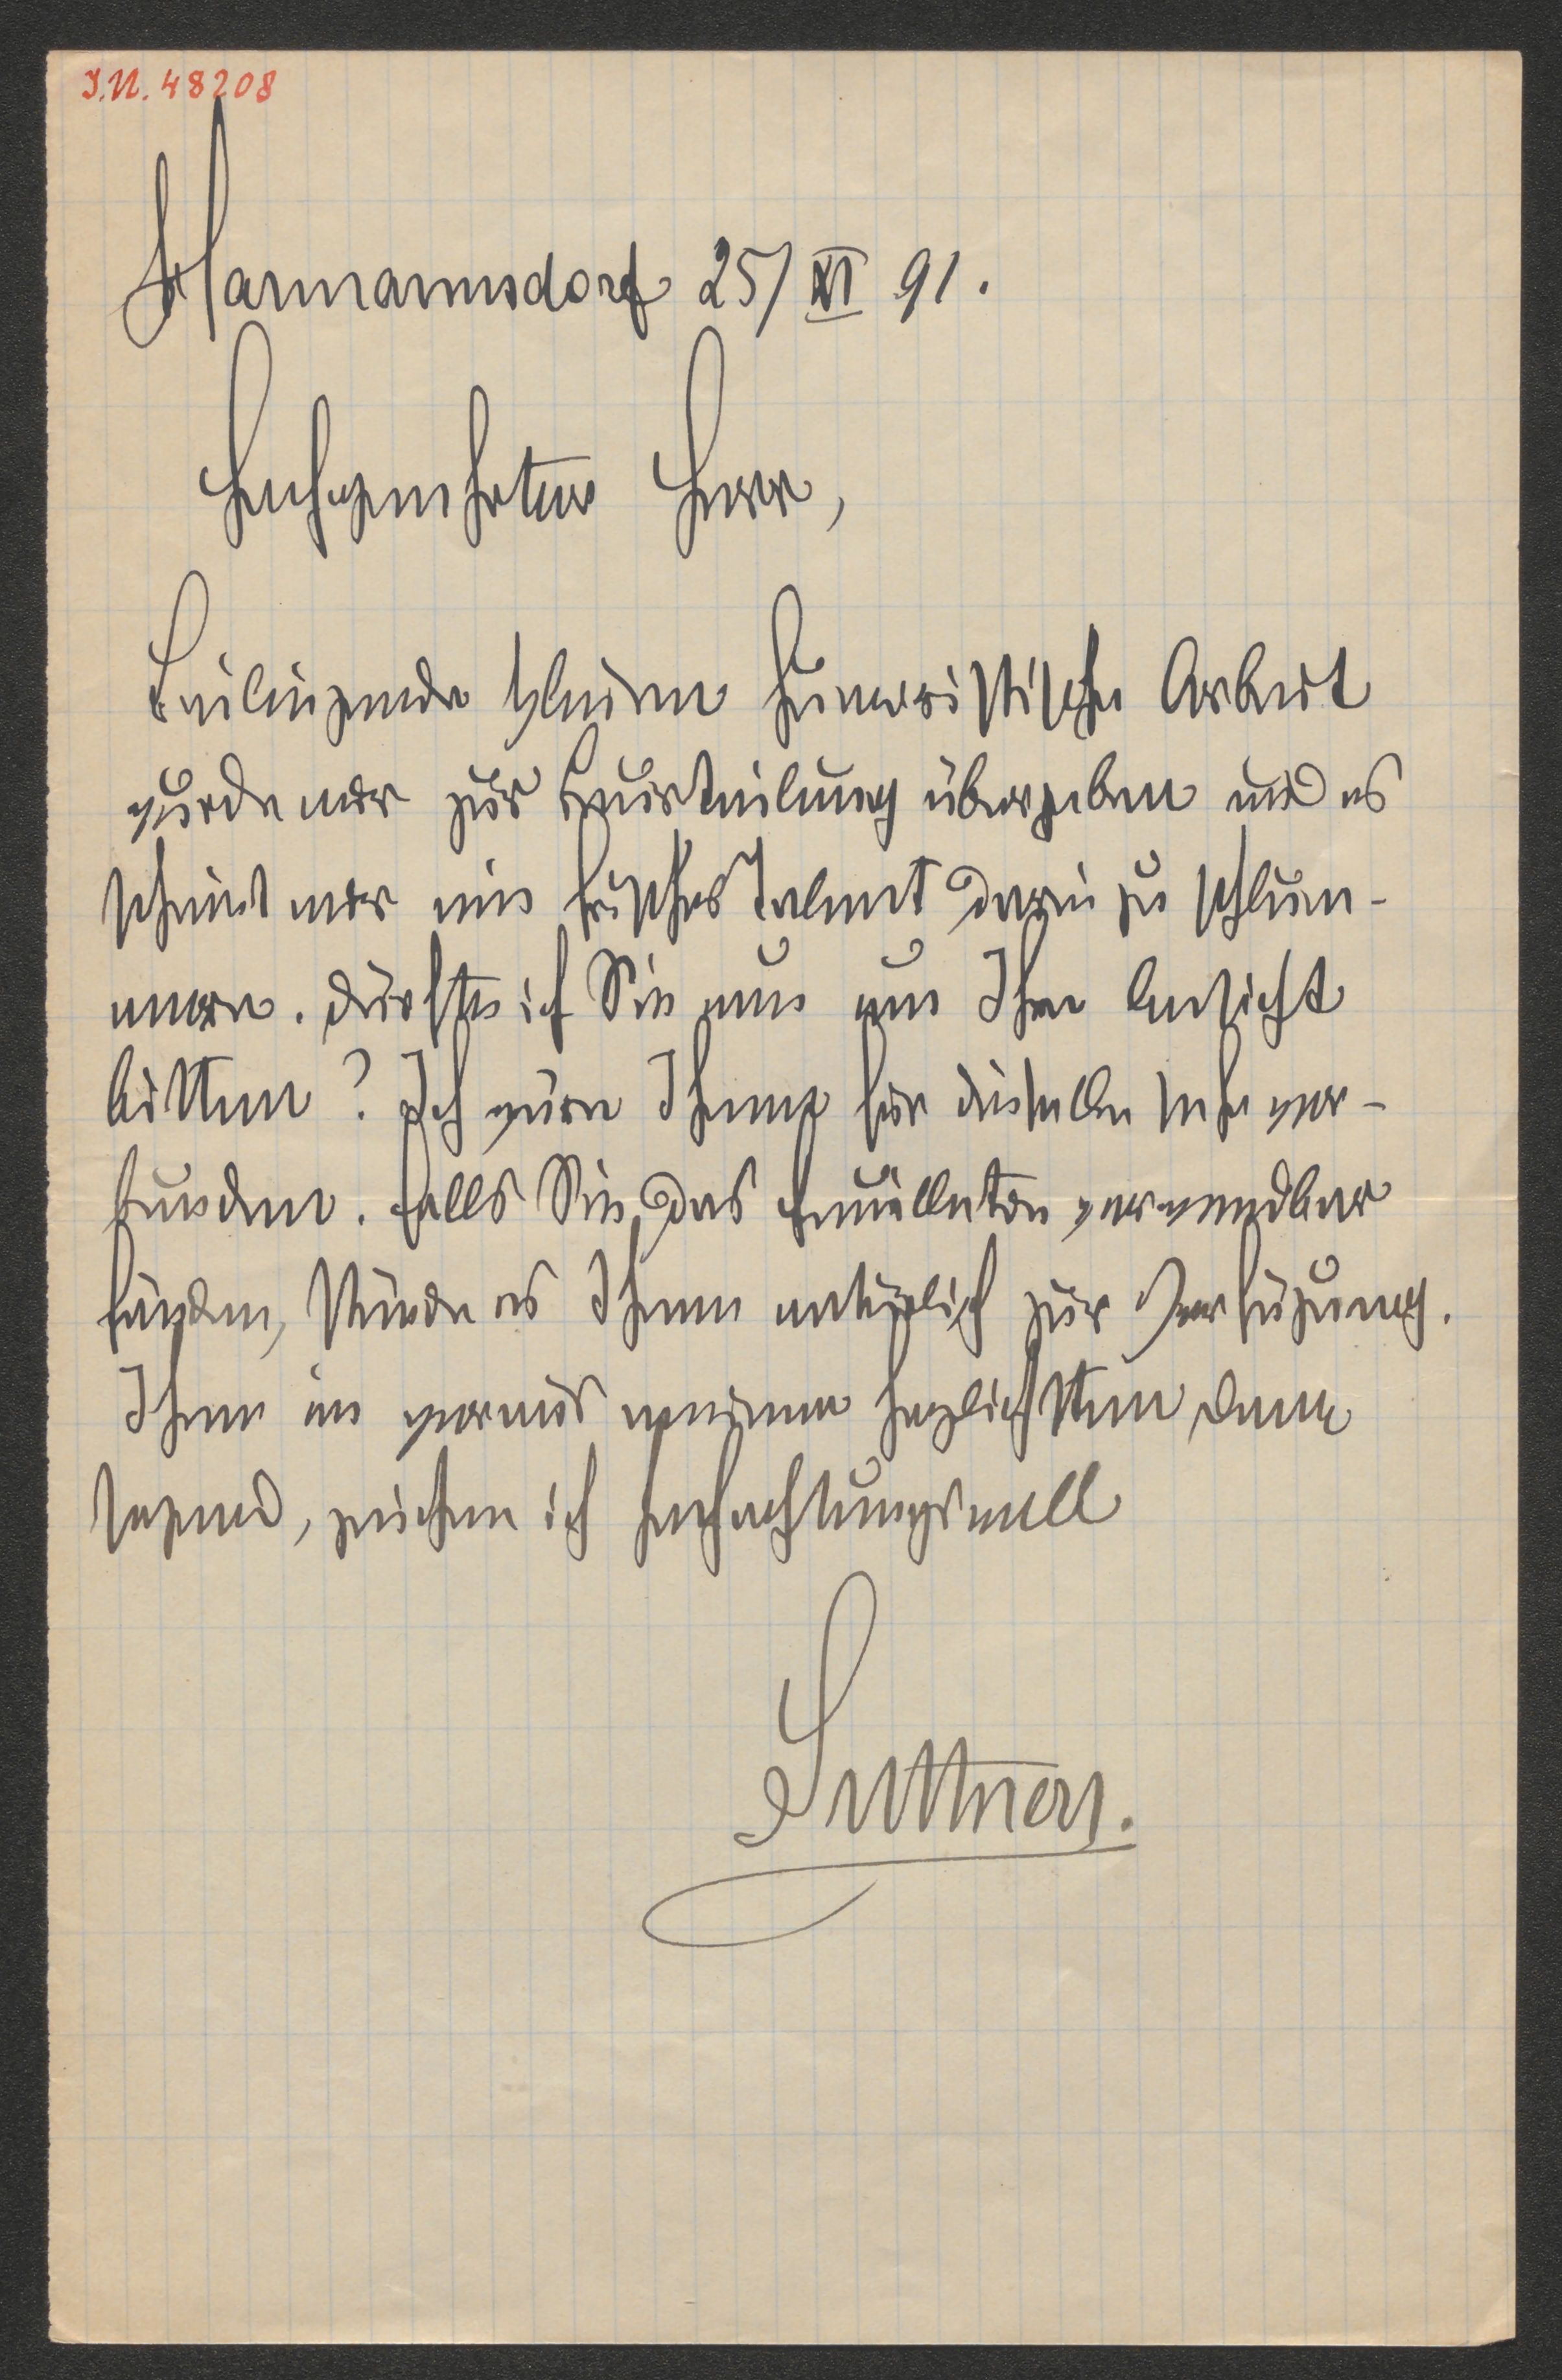 I.N. 48208
Harmannsdorf 25/XI 91.
Hochgeehrter Herr,
Beiliegende kleine humoristische Arbeit
wurde mir zur Beurteilung übergeben und es
scheint mir ein frisches Talent darin zu schlum-
mern. Dürfte ich Sie nun um Ihre Ansicht
bitten? Ich wäre Ihnen für dieselbe sehr ver-
bunden. Falls Sie das Feuilleton verwendbar
fänden, stünde es Ihnen natürlich zur Verfügung.
Ihnen im voraus meinen herzlichsten Dank
sagend, zeichne ich hochachtungsvoll
Suttner.